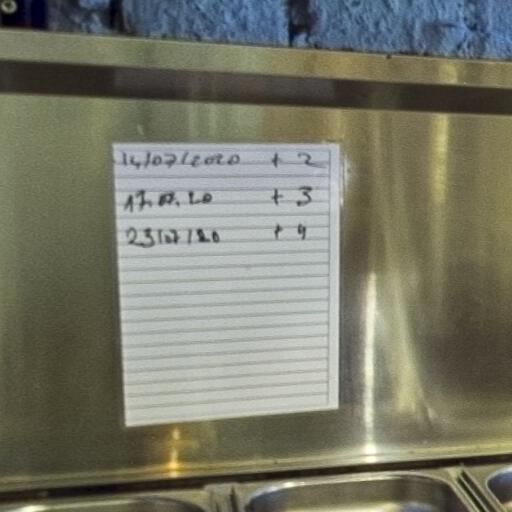 14/07/2020 + 2
17.07.20 + 3
23/07/20 + 4